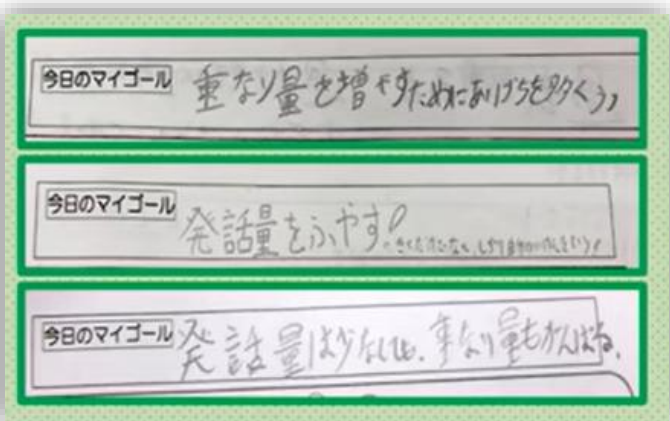 今日のマイゴール 重なり量を増やすためにあいづちを多くうつ
今日のマイゴール 発話量をふやす!
今日のマイゴール 発話量は少なくても、重なり量もがんばる。